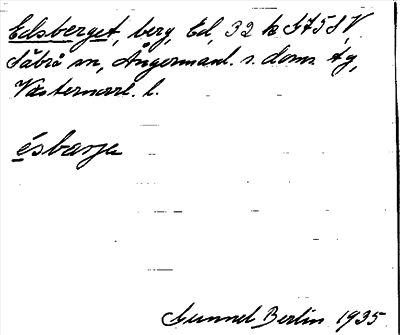 Edsberget, berg, Ed, 32 k SV58V
Såbrå sn, Ångermanl. s. doms tg,
Västernorrl. l.
ésbærjæ
Gunnel Berlin 1935